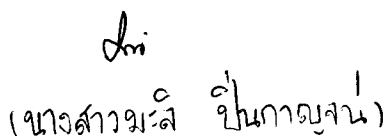 (นางสาวมะลิ ปิ่นกาญจน์)